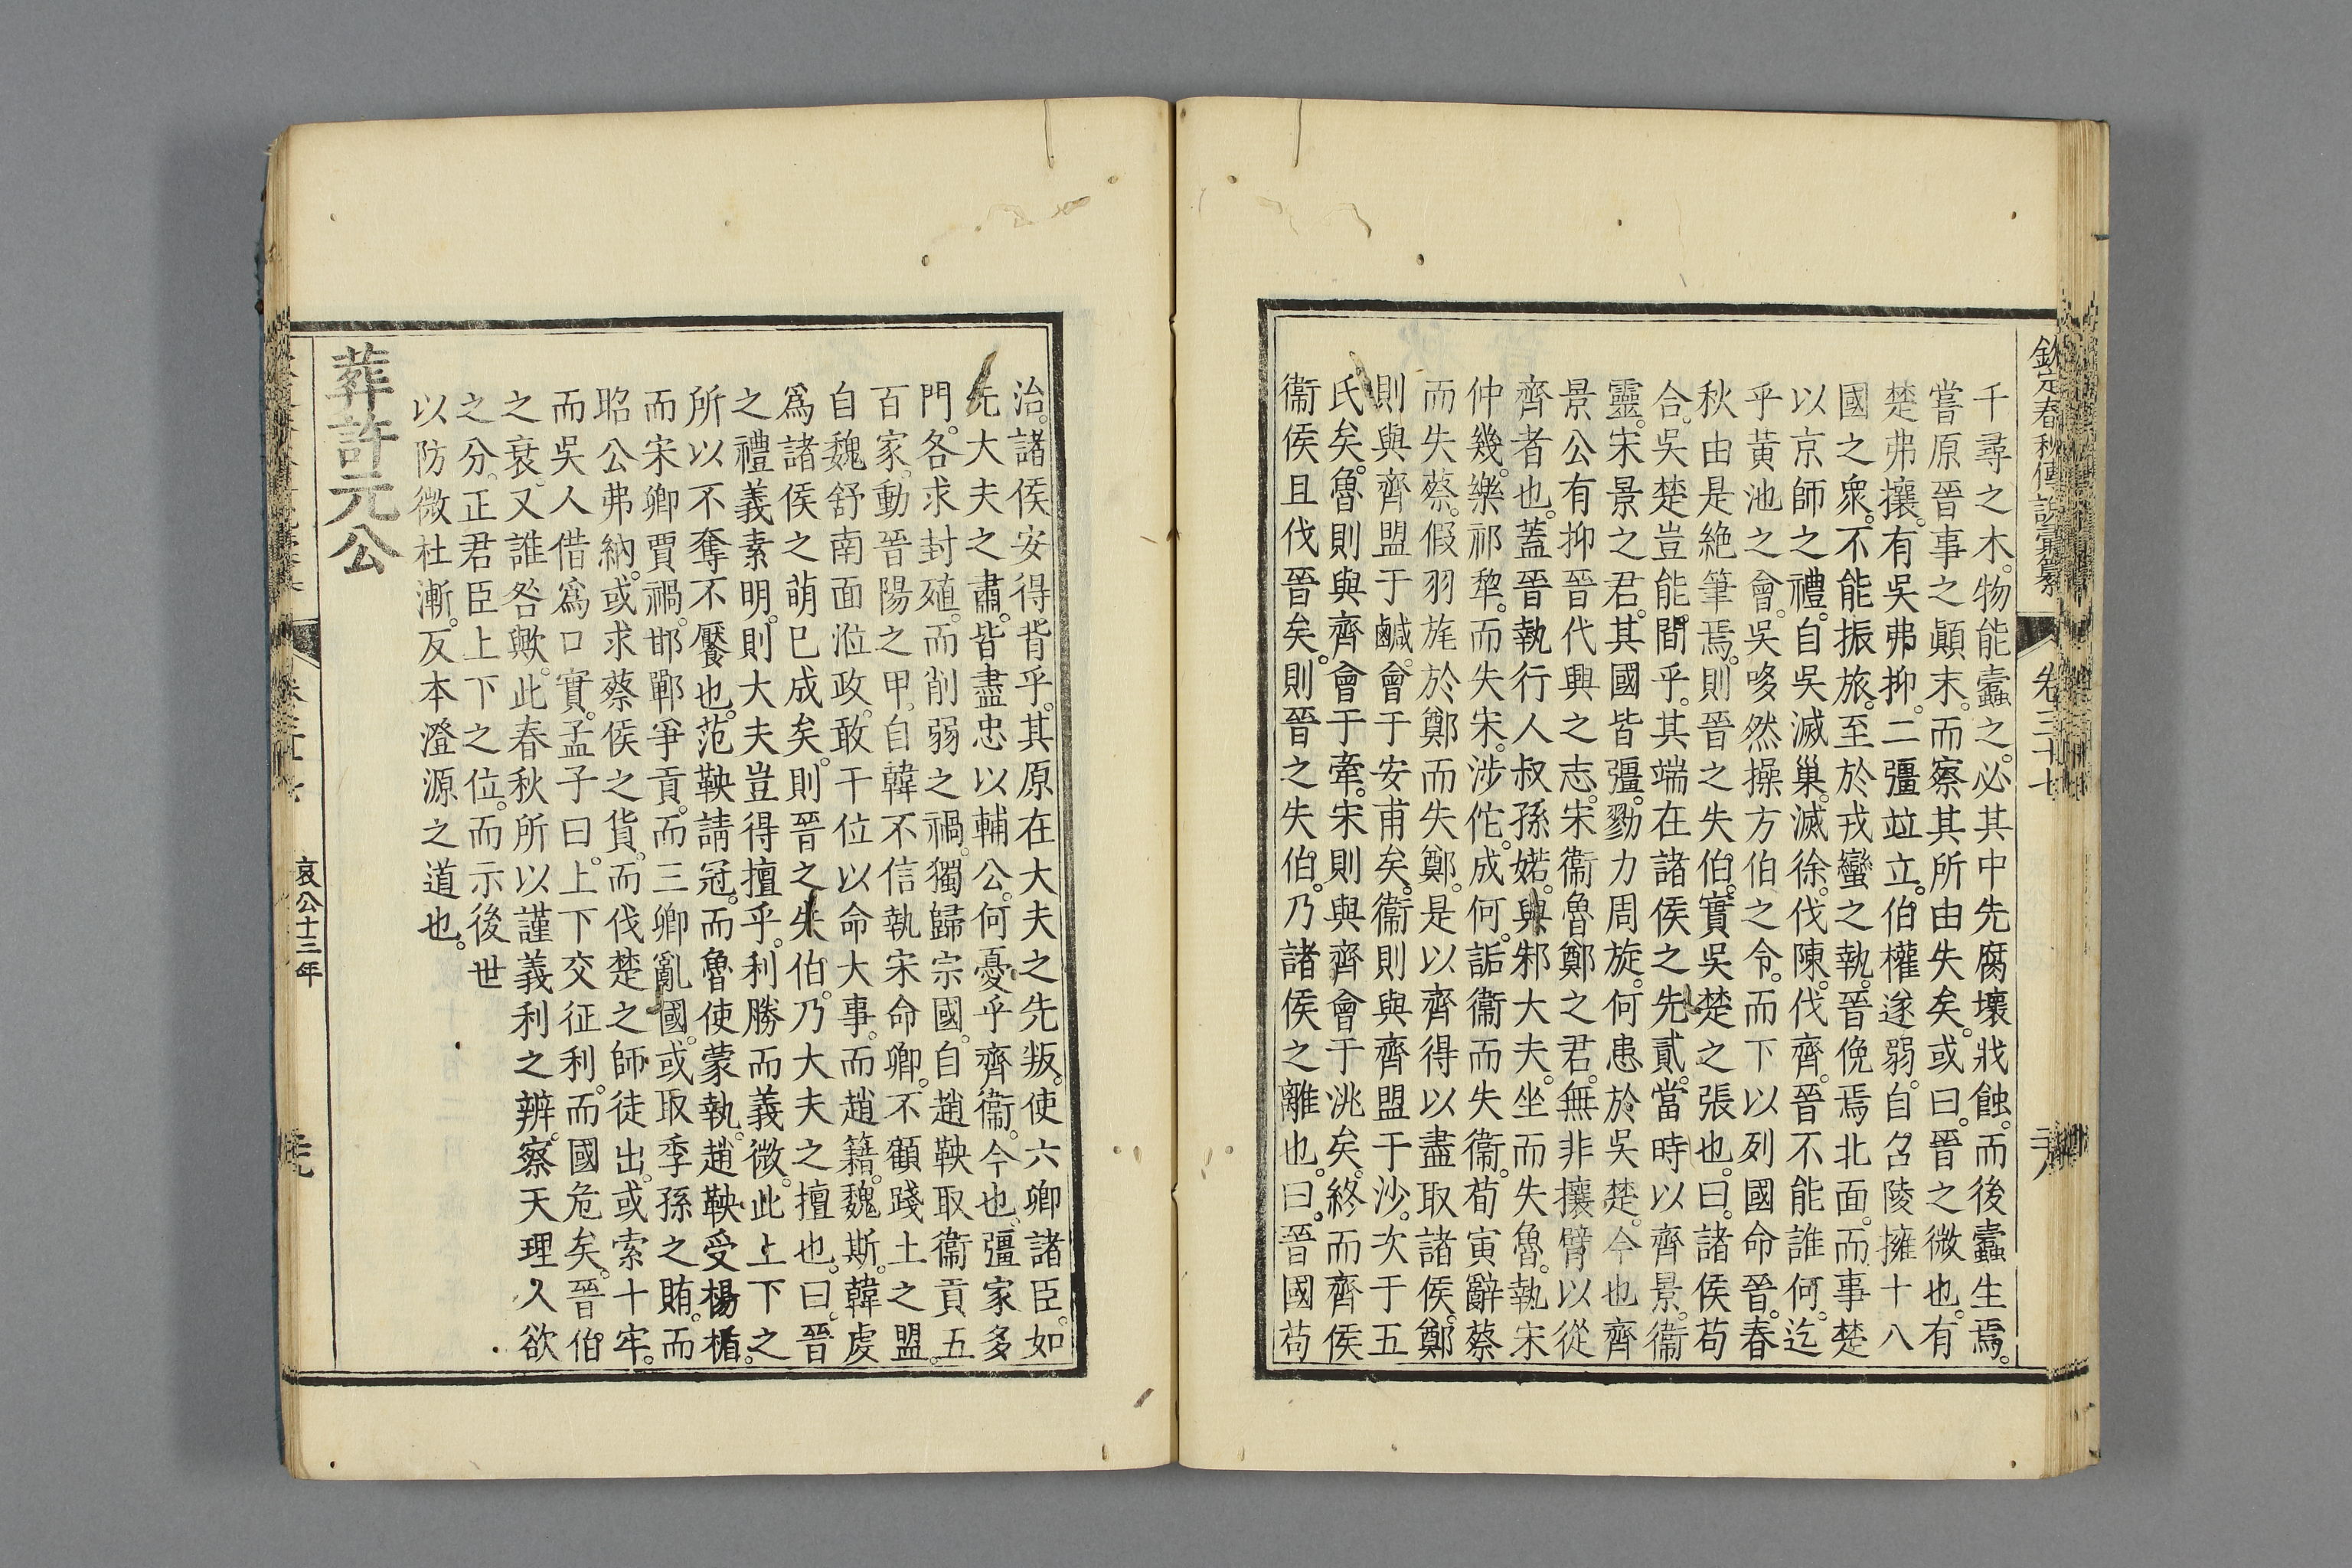 欽定春秋傳說彙纂 卷三十七
千尋之木。物能蠹之。必其中先腐壞戕蝕。而後蠹生焉。
嘗原晉事之顚末。而察其所由失矣。或曰。晉之微也。有
楚弗攘。有吳弗抑。二彊竝立。伯權遂弱。自召陵擁十八
國之衆。不能振旅。至於戎蠻之執。晉俛焉北面。而事楚
以京師之禮。自吳滅巢。滅徐。伐陳。伐齊。晉不能誰何。迄
乎黃池之會。吳哆然操方伯之令。而下以列國命晉。春
秋由是絶筆焉。則晉之失伯。實吳楚之張也。曰。諸侯苟
合。吳楚豈能間乎。其端在諸侯之先貳。當時以齊景。衞
靈。宋景之君。其國皆彊。勠力周旋。何患於吳楚。今也齊
景公有抑晉代興之志。宋衞魯鄭之君。無非攘臂以從
齊者也。蓋晉執行人叔孫婼。與邾大夫坐。而失魯。執宋
仲幾。樂祁犂。而失宋。涉佗。成何。詬衞而失衞。荀寅辭蔡
而失蔡。假羽旄於鄭而失鄭。是以齊得以盡取諸侯。鄭
則與齊盟于鹹。會于安甫矣。衞則與齊盟于沙。次于五
氏矣。魯則與齊會于牽。宋則與齊會于洮矣。終而齊侯
衞侯且伐晉矣。則晉之失伯。乃諸侯之離也。曰。晉國苟
治。諸侯安得背乎。其原在大夫之先叛。使六卿諸臣。如
先大夫之肅。皆盡忠以輔公。何憂乎齊衞。今也。彊家多
門。各求封殖。而削弱之禍。獨歸宗國。自趙鞅取衞貢五
百家。動晉陽之甲。自韓不信執宋命卿。不顧踐土之盟。
自魏舒南面涖政。敢干位以命大事。而趙籍。魏斯。韓虔
爲諸侯之萌已成矣。則晉之失伯。乃大夫之擅也。曰。晉
之禮義素明。則大夫豈得擅乎。利勝而義微。此上下之
所以不奪不饜也。范鞅請冠。而魯使蒙執。趙鞅受楊楯。
而宋卿賈禍。邯鄲爭貢。而三卿亂國。或取季孫之賄。而
昭公弗納。或求蔡侯之貨。而伐楚之師徒出。或索十牢。
而吳人借爲口實。孟子曰。上下交征利。而國危矣。晉伯
之衰。又誰咎歟。此春秋所以謹義利之辨。察天理人欲
之分。正君臣上下之位。而示後世
以防微杜漸。反本澄源之道也。
葬許元公
哀公十三年